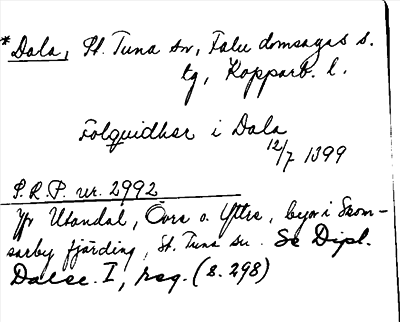 *Dala, St. Tuna sn, Falu domsagas s.
tg, Kopparb. l.
Folquidhær i Dala
12/7 1399
S.R.P. nr. 2992
Jfr Utandal, Övre o. Yttre, byar i Skom-
sarby fjärding, St. Tuna sn. Se Dipl.
Dalec. I, reg. (s. 298)